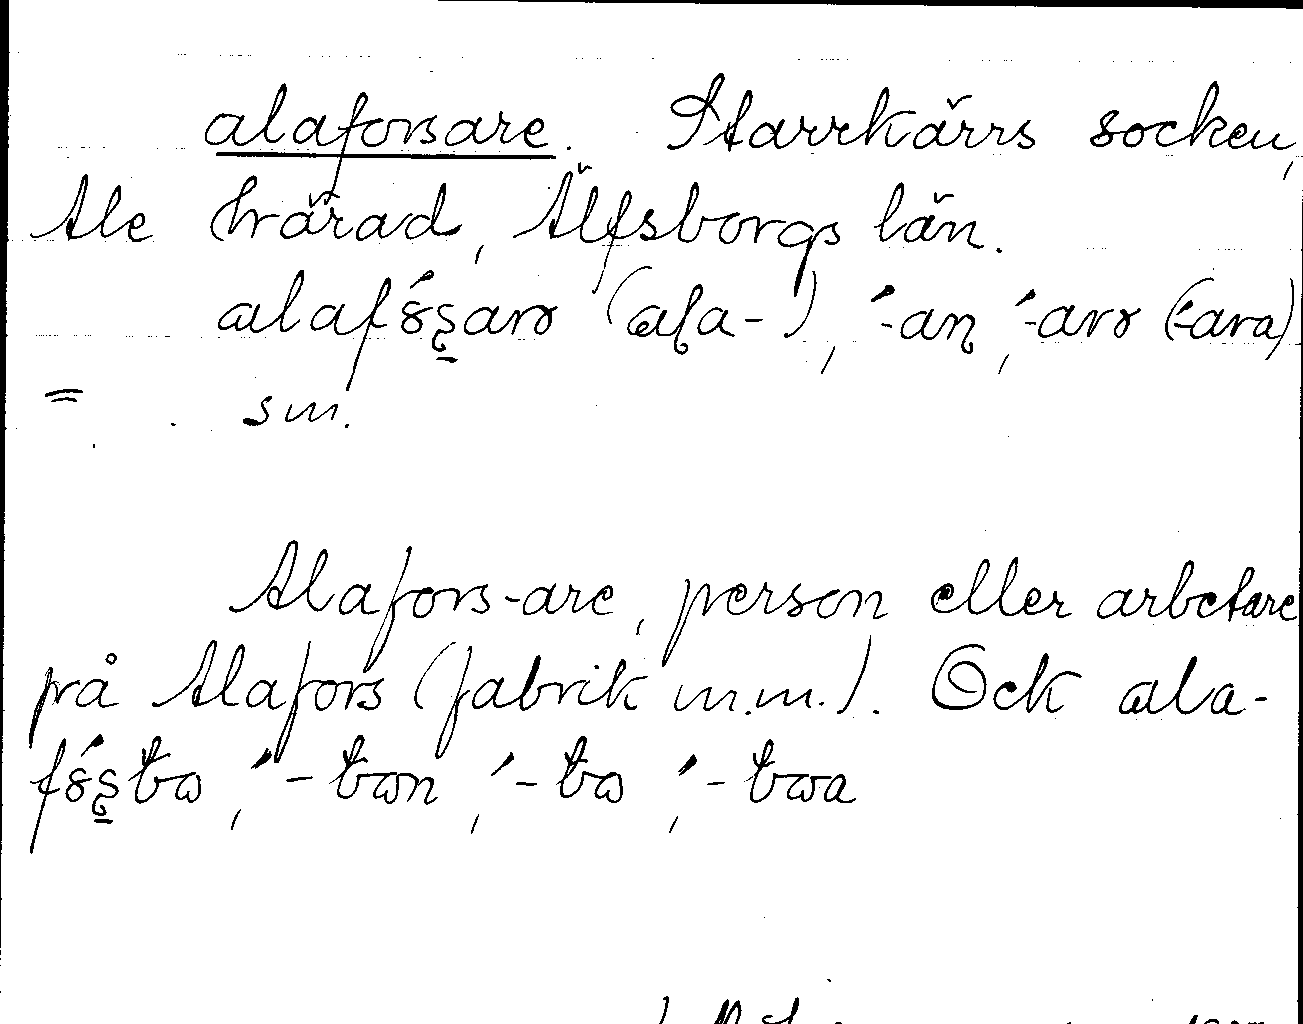 alaforsare. Starrkärrs socken,
Ale härad, Älfsborgs län.
alafǿʂarə (aɭa-), ´-aɳ, ´-arə (´-ara)
= sm.
Alafors-are, person eller arbetare
på Alafors (fabrik m.m.). Ock ala-
fǿʂtɷ, ´-tɷn, ´-tɷ, ´-tɷa